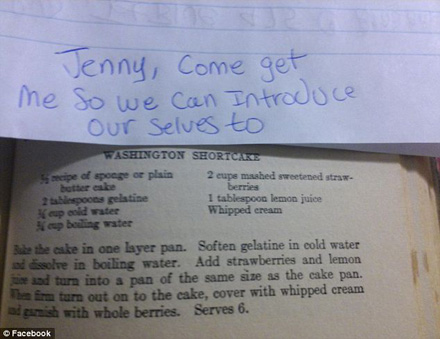 Jenny, Come get
me so we can Introduce
our selves to
WASHINGTON SHORTCAKE
½ recipe of sponge or plain
butter cake
2 tablespoons gelatine
¾ cup cold water
¾ cup boiling water
2 cups mashed sweetened straw-
berries
1 tablespoon lemon juice
Whipped cream
Bake the cake in one layer pan. Soften gelatine in cold water
and dissolve in boiling water. Add strawberries and lemon
juice and turn into a pan of the same size as the cake pan.
When firm turn out on to the cake, cover with whipped cream
and garnish with whole berries. Serves 6.
© Facebook